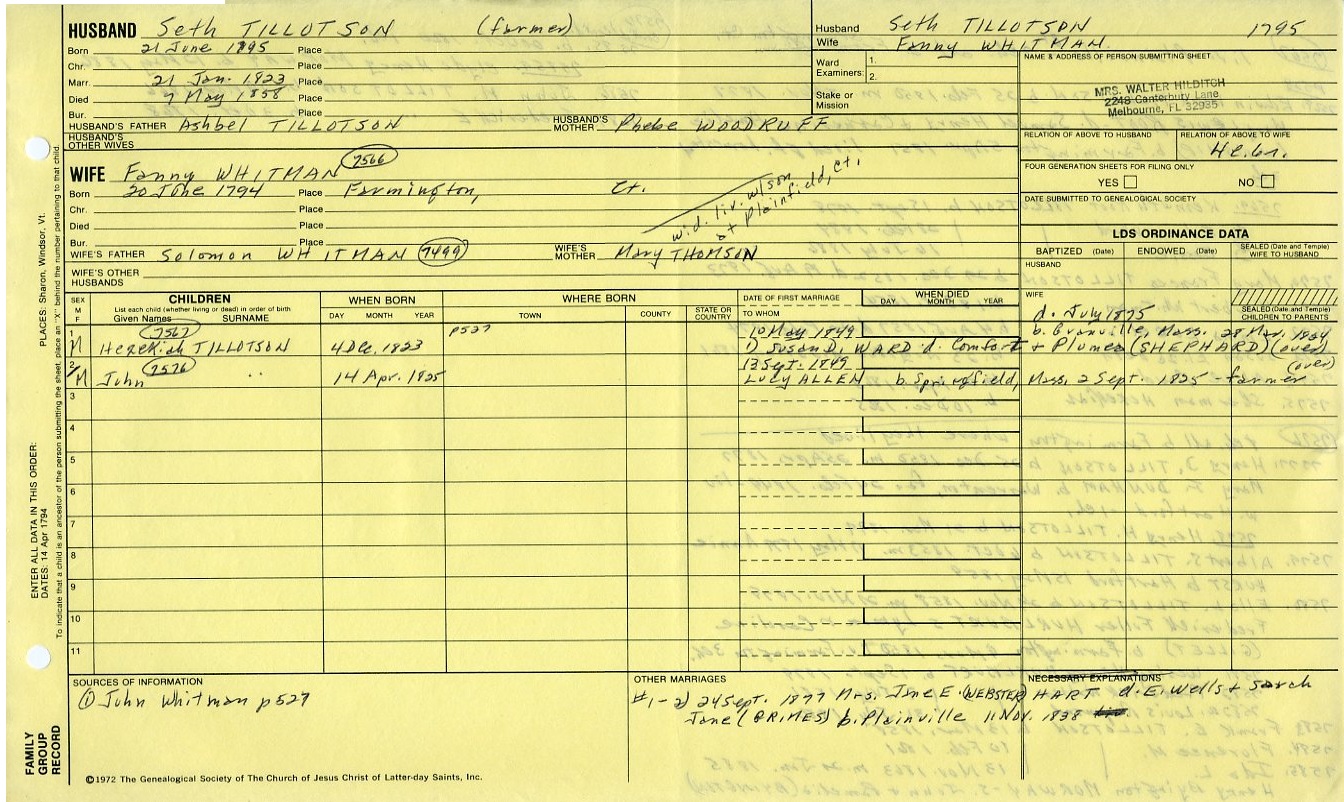 HUSBAND Seth TILLOTSON (farmer)
Born 21 June 1895 Place
Chr. Place
Marr. 21 Jan. 1823 Place
Died 7 May 1858 Place
Bur. Place
HUSBAND'S FATHER Ashbel TILLOTSON HUSBAND'S MOTHER Phebe WOODRUFF
HUSBAND'S OTHER WIVES
Husband Seth TILLOTSON 1795
Wife Fanny WHITMAN.
Ward Examiners: 1.
2.
Stake or Mission
NAME & ADDRESS OF PERSON SUBMITTING SHEET
MRS. WALTER HILDITCH
2248 Canterbury Lane
Melbourne, FL 32935
RELATION OF ABOVE TO HUSBAND RELATION OF ABOVE TO WIFE
FOUR GENERATION SHEETS FOR FILING ONLY
YES NO
DATE SUBMITTED TO GENEALOGICAL SOCIETY
WIFE Fanny WHITMAN 7566
Born 20 June 1794 Place Farmington, Ct.
Chr. Place
Died Place
Bur. Place
wid. liv. w/son
at Plainfield, Ct.
WIFE'S FATHER Solomon WHITMAN 7499 WIFE'S MOTHER Mary THOMSON
WIFE'S OTHER HUSBANDS
LDS ORDINANCE DATA
BAPTIZED (Date) ENDOWED (Date) SEALED (Date and Temple) WIFE TO HUSBAND
HUSBAND
WIFE
d. July 1875
SEALED (Date and Temple) CHILDREN TO PARENTS
SEX M F
CHILDREN
List each child (whether living or dead) in order of birth
Given Names SURNAME
WHEN BORN
DAY MONTH YEAR
WHERE BORN
TOWN COUNTY STATE OR COUNTRY
DATE OF FIRST MARRIAGE
TO WHOM
WHEN DIED
DAY MONTH YEAR
1 7567 p527 10 May 1849 b. Granville, Mass. 28 Mar. 1824
M Hezekiah TILLOTSON 4 Dec. 1823 1) Susan D. WARD d. Comfort + Plumea (SHEPHARD) (over)
2 7576 13 Sept. 1849 (over)
M John " 14 Apr. 1825 Lucy ALLEN b. Springfield, Mass. 2 Sept. 1825 - farmer
3
4
5
6
7
8
9
10
11
SOURCES OF INFORMATION
① John Whitman p527
OTHER MARRIAGES
#1-2) 24 Sept. 1877 Mrs. Jane E. (WEBSTER) HART d. E. Wells + Sarah
Jane (GRIMES) b. Plainville 11 Nov. 1838
NECESSARY EXPLANATIONS
FAMILY GROUP RECORD
©1972 The Genealogical Society of The Church of Jesus Christ of Latter-day Saints, Inc.
ENTER ALL DATA IN THIS ORDER:
DATES: 14 Apr 1794
PLACES: Sharon, Windsor, Vt.
To indicate that a child is an ancestor of the person submitting the sheet, place an "X" behind the number pertaining to that child.